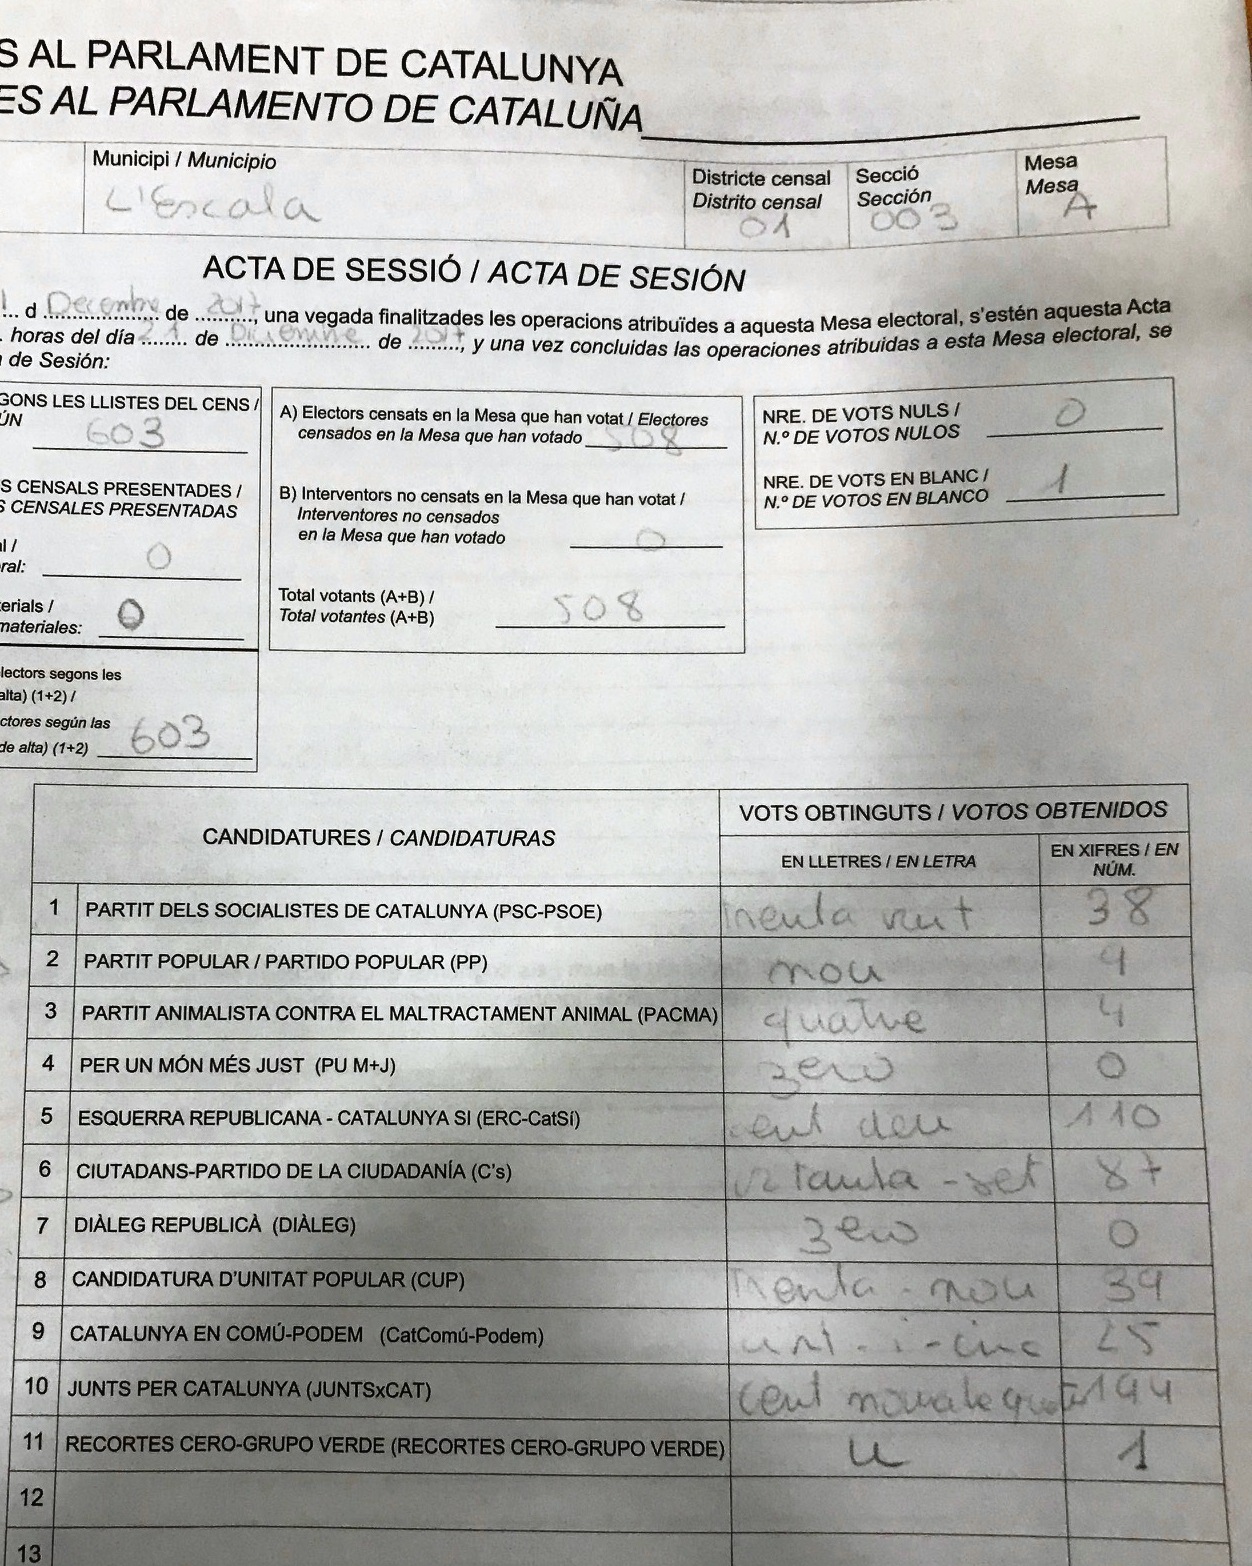 S AL PARLAMENT DE CATALUNYA
ES AL PARLAMENTO DE CATALUÑA
Municipi / Municipio
L'Escala
Districte censal
Distrito censal
01
Secció
Sección
003
Mesa
Mesa
A
ACTA DE SESSIÓ / ACTA DE SESIÓN
d Decembre de 2017, una vegada finalitzades les operacions atribuïdes a aquesta Mesa electoral, s'estén aquesta Acta
horas del día 21 de Diciembre de 2017, y una vez concluidas las operaciones atribuidas a esta Mesa electoral, se
de Sesión:
GONS LES LLISTES DEL CENS /
ÚN
603
S CENSALS PRESENTADES /
S CENSALES PRESENTADAS
ral:
0
erials /
materiales:
0
lectors segons les
alta) (1+2) /
ctores según las
de alta) (1+2)
603
A) Electors censats en la Mesa que han votat / Electores
censados en la Mesa que han votado
508
B) Interventors no censats en la Mesa que han votat /
Interventores no censados
en la Mesa que han votado
0
Total votants (A+B) /
Total votantes (A+B)
508
NRE. DE VOTS NULS /
N.º DE VOTOS NULOS
0
NRE. DE VOTS EN BLANC /
N.º DE VOTOS EN BLANCO
1
CANDIDATURES / CANDIDATURAS
VOTS OBTINGUTS / VOTOS OBTENIDOS
EN LLETRES / EN LETRA
EN XIFRES / EN NÚM.
1 PARTIT DELS SOCIALISTES DE CATALUNYA (PSC-PSOE) 38
2 PARTIT POPULAR / PARTIDO POPULAR (PP) nou 9
3 PARTIT ANIMALISTA CONTRA EL MALTRACTAMENT ANIMAL (PACMA) quatre 4
4 PER UN MÓN MÉS JUST (PU M+J) zero 0
5 ESQUERRA REPUBLICANA - CATALUNYA SI (ERC-CatSí) cent deu 110
6 CIUTADANS-PARTIDO DE LA CIUDADANÍA (C's) vuitanta-set 87
7 DIÀLEG REPUBLICÀ (DIÀLEG) zero 0
8 CANDIDATURA D'UNITAT POPULAR (CUP) Trenta-nou 39
9 CATALUNYA EN COMÚ-PODEM (CatComú-Podem) vint-i-cinc 25
10 JUNTS PER CATALUNYA (JUNTSxCAT) Cent 194
11 RECORTES CERO-GRUPO VERDE (RECORTES CERO-GRUPO VERDE) u 1
12
13